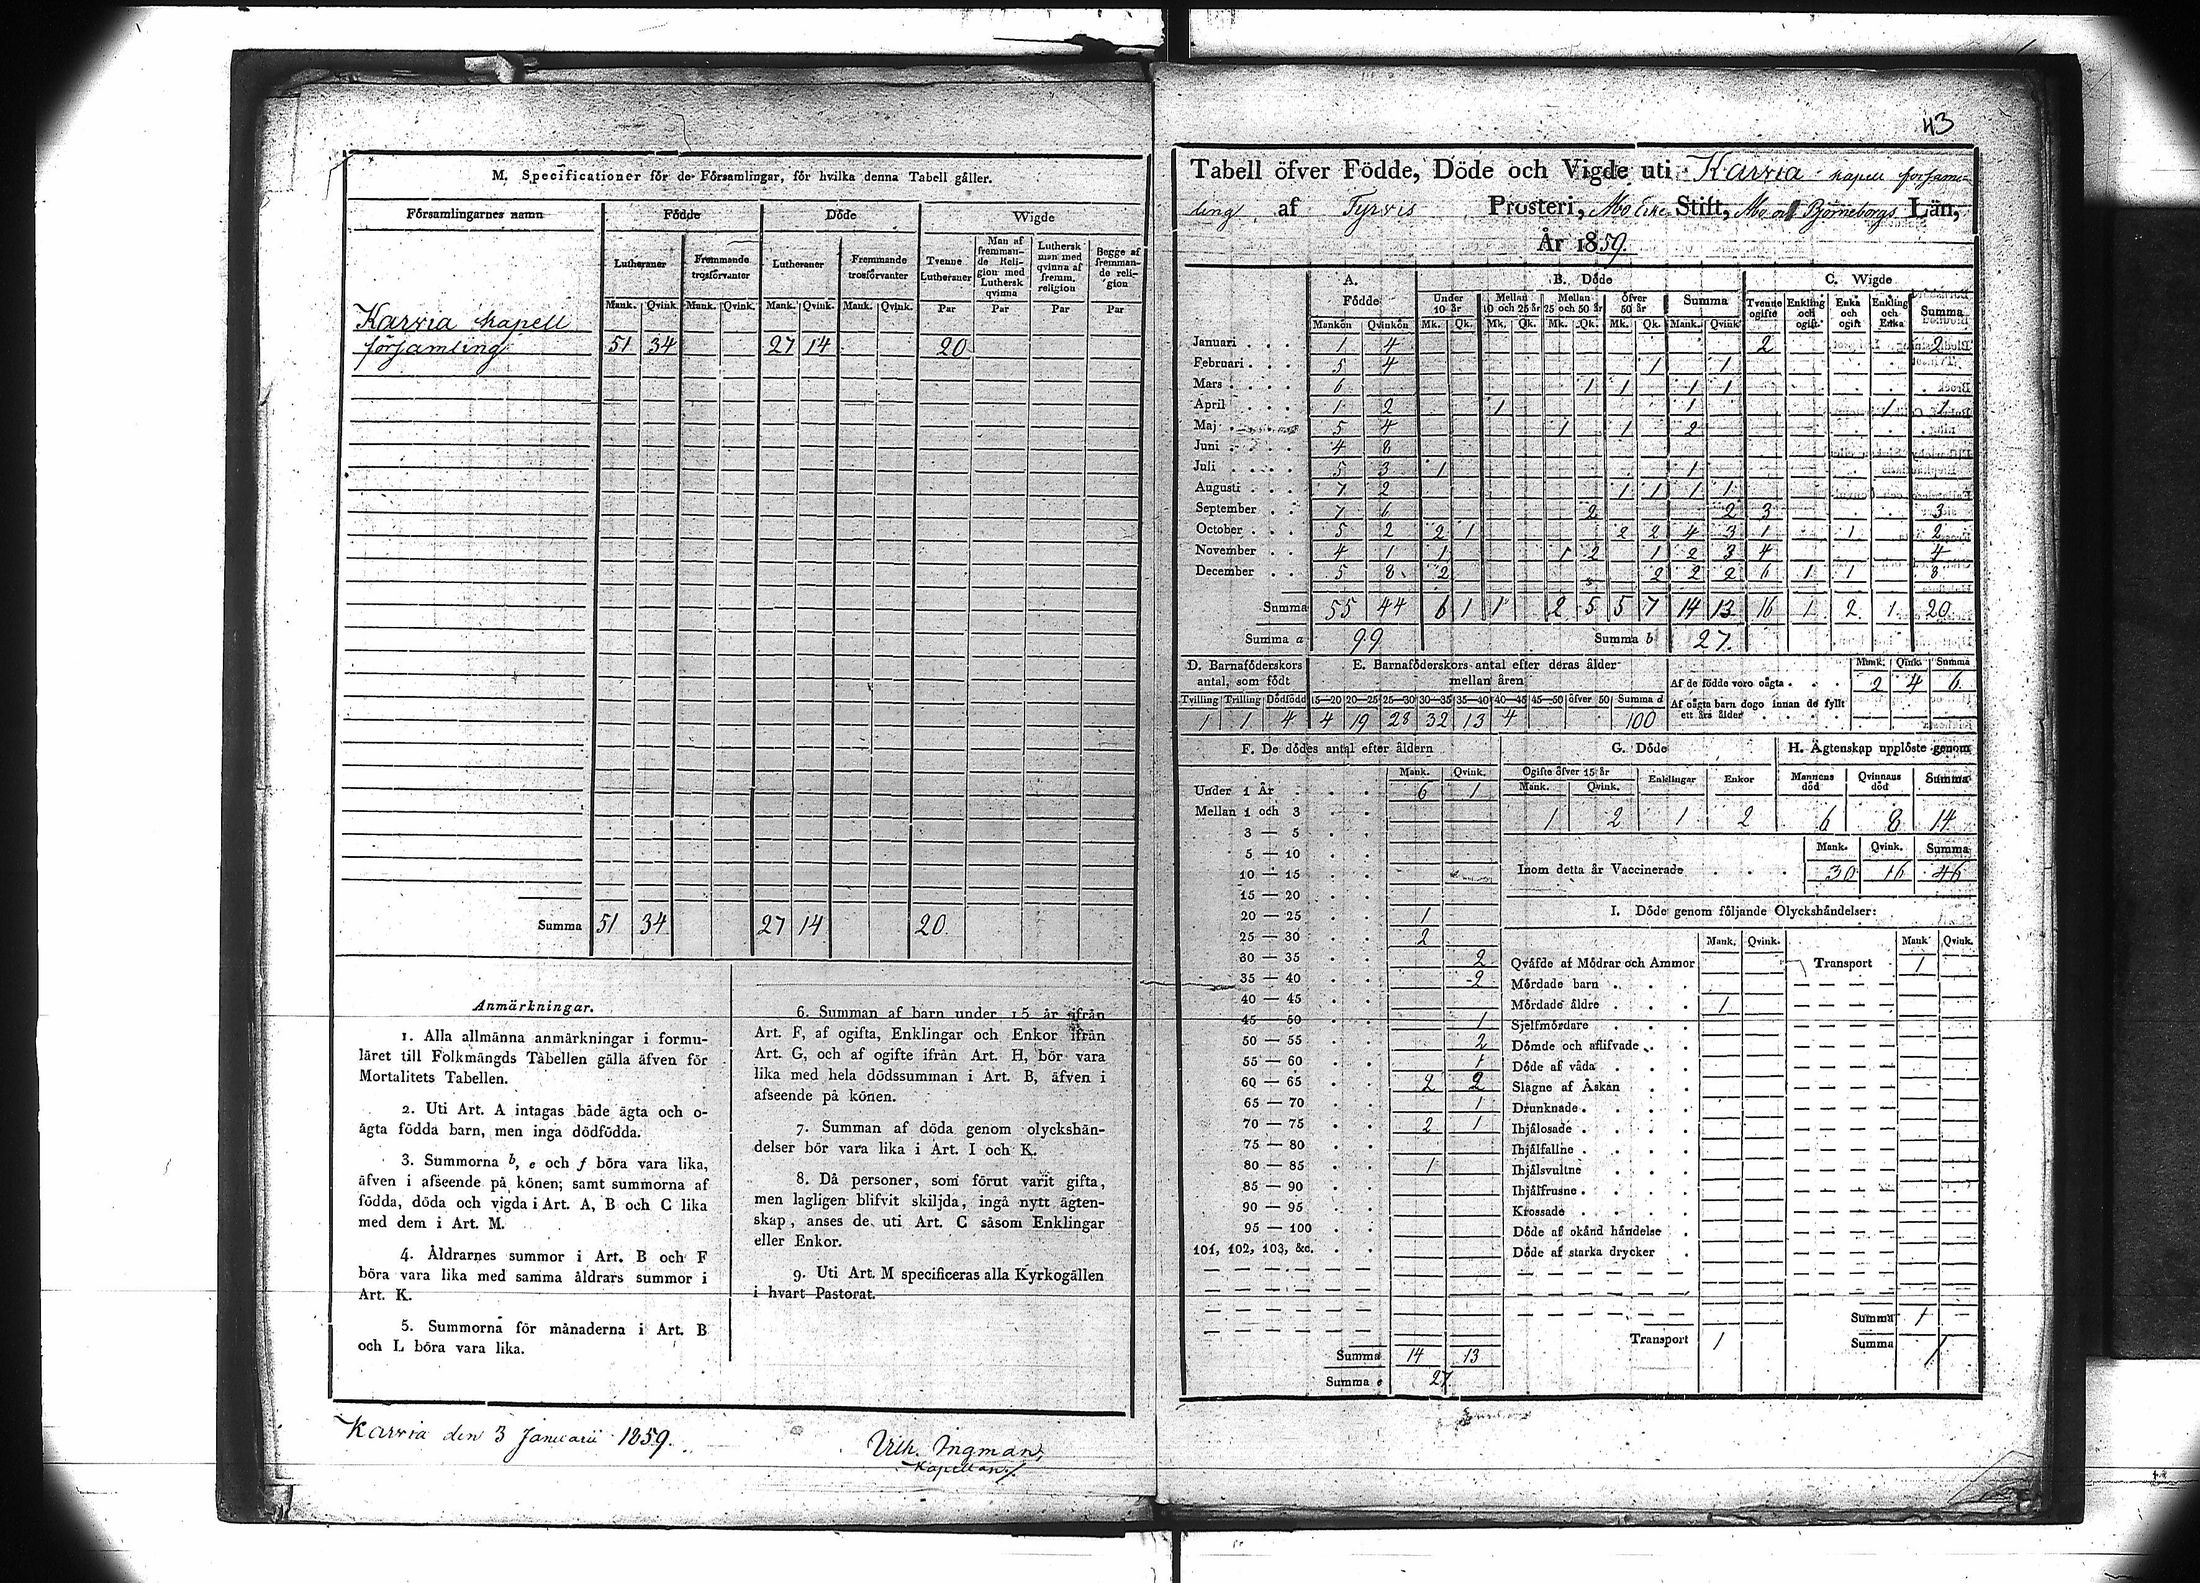 M. Specificationer för de Församlingar, för hvilka denna Tabell gäller.
Församlingarnes namn Födde Döde Wigde
Lutheraner Fremmande trosförvanter Lutheraner Fremmande trosförvanter Tvenne Lutheraner Man af fremmande Religion med Luthersk qvinna Luthersk man med qvinna af fremm. religion Begge af fremmande religion
Mank. Qvink. Mank. Qvink. Mank. Qvink. Mank. Qvink. Par Par Par Par
Karvia kapell
församling 51 34 27 14 20
Summa 51 34 27 14 20
Anmärkningar.
1. Alla allmänna anmärkningar i formu-
läret till Folkmängds Tabellen gälla äfven för
Mortalitets Tabellen.
2. Uti Art. A intagas både ägta och o-
ägta födda barn, men inga dödfödda.
3. Summorna b, e och f böra vara lika,
äfven i afseende på könen; samt summorna af
födda, döda och vigda i Art. A, B och C lika
med dem i Art. M.
4. Åldrarnes summor i Art. B och F
böra vara lika med samma åldrars summor i
Art. K.
5. Summorna för månaderna i Art. B
och L böra vara lika.
6. Summan af barn under 15 år ifrån
Art. F, af ogifta, Enklingar och Enkor ifrån
Art. G, och af ogifte ifrån Art. H, bör vara
lika med hela dödssumman i Art. B, äfven i
afseende på könen.
7. Summan af döda genom olyckshän-
delser bör vara lika i Art. I och K.
8. Då personer, som förut varit gifta,
men lagligen blifvit skiljda, ingå nytt ägten-
skap, anses de uti Art. C såsom Enklingar
eller Enkor.
9. Uti Art. M specificeras alla Kyrkogällen
i hvart Pastorat.
Karvia den 3 Januarii 1859.
Vilh. Ingman,
Kapellan.
43
Tabell öfver Födde, Döde och Vigde uti Karvia kapell försam-
ling af Tyrvis Prosteri, Åbo Erke Stift, Åbo och Björneborgs Län,
År 1859.
A. Födde B. Döde C. Wigde
Under 10 år Mellan 10 och 25 år Mellan 25 och 50 år Öfver 50 år Summa Tvenne ogifte Enkling och ogift Enka och ogift Enkling och Enka Summa
Mankön Qvinkön Mk. Qk. Mk. Qk. Mk. Qk. Mk. Qk. Mank. Qvink.
Januari 1 4 2 2
Februari 5 4 1 1
Mars 6 1 1 1 1
April 1 2 1 1 1 1
Maj 5 4 1 1 2
Juni 4 8
Juli 5 3 1 1
Augusti 7 2 1 1 1 1
September 7 6 2 2 3 3
October 5 2 2 1 2 2 4 3 1 1 2
November 4 1 1 1 2 1 2 3 4 4
December 5 8 2 2 2 2 6 1 1 8
Summa 55 44 6 1 1 2 5 5 7 14 13 16 1 2 1 20
Summa a 99 Summa b 27.
D. Barnaföderskors antal, som födt
Tvilling Trilling Dödfödd
1 1 4
E. Barnaföderskors antal efter deras ålder mellan åren
15—20 20—25 25—30 30—35 35—40 40—45 45—50 öfver 50 Summa d
4 19 28 32 13 4 100
Mank. Qvink. Summa
Af de födde voro oägta 2 4 6
Af oägta barn dogo innan de fyllt
ett års ålder
F. De dödes antal efter åldern
Mank. Qvink.
Under 1 År 6 1
Mellan 1 och 3
3 — 5
5 — 10
10 — 15
15 — 20
20 — 25 1
25 — 30 2
30 — 35 2
35 — 40 2
40 — 45
45 — 50 1
50 — 55 2
55 — 60 1
60 — 65 2 2
65 — 70 1
70 — 75 2 1
75 — 80
80 — 85 1
85 — 90
90 — 95
95 — 100
101, 102, 103, &c.
Summa 14 13
Summa e 27
G. Döde
Ogifte öfver 15 år Enklingar Enkor
Mank. Qvink.
1 2 1 2
H. Ägtenskap upplöste genom
Mannens död Qvinnans död Summa
6 8 14
Mank. Qvink. Summa
Inom detta år Vaccinerade 30 16 46
I. Döde genom följande Olyckshändelser:
Mank. Qvink. Mank. Qvink.
Qväfde af Mödrar och Ammor Transport 1
Mördade barn
Mördade äldre 1
Sjelfmördare
Dömde och aflifvade
Döde af våda
Slagne af Åskan
Drunknade
Ihjälosade
Ihjälfallne
Ihjälsvultne
Ihjälfrusne
Krossade
Döde af okänd händelse
Döde af starka drycker
Summa 1
Transport 1 Summa 1